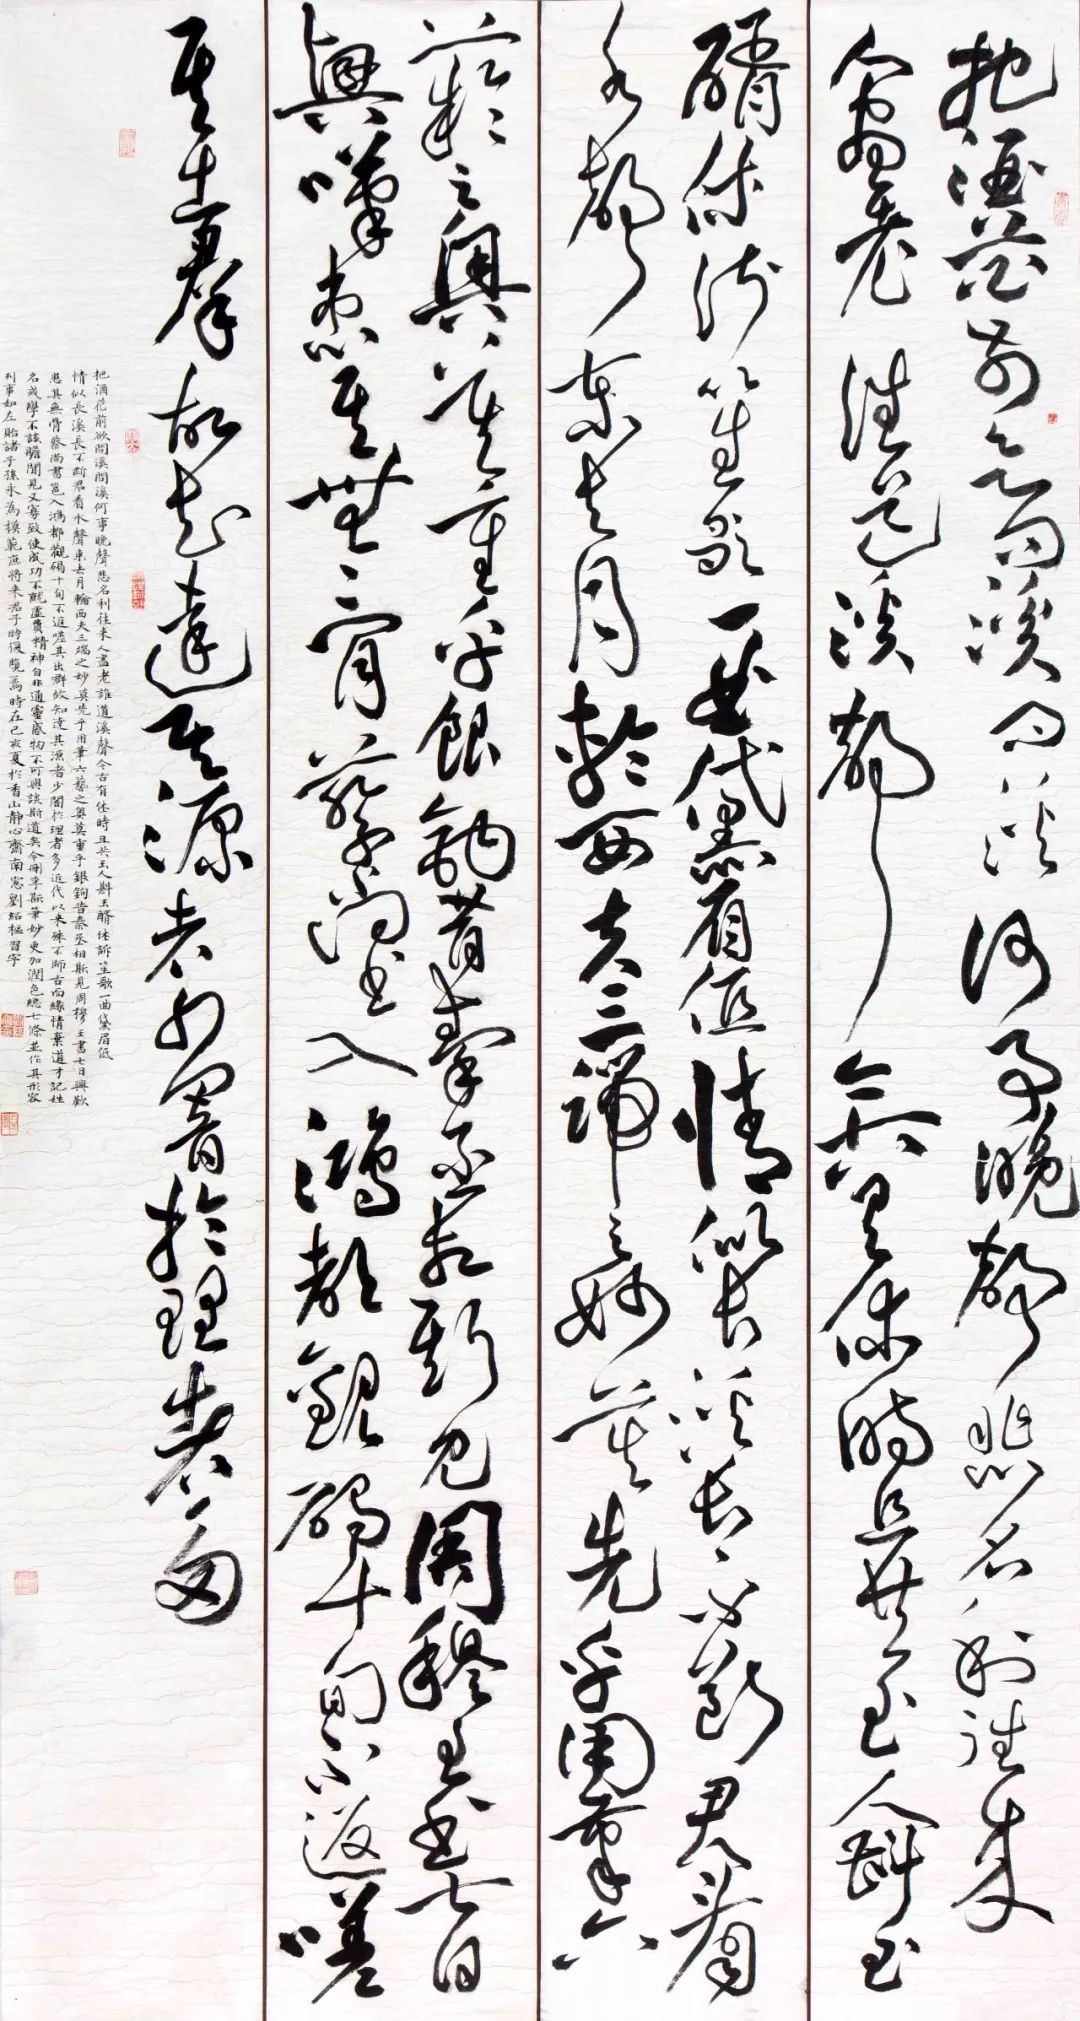 把酒花前欲問溪問溪何事晚聲悲名利往來
人盡老誰道溪聲今古有休時且共玉人斟玉
醑休訴笙歌一曲黛眉低情似長溪長不斷君看
水聲東去月輪西夫三端之妙莫先乎用筆六
藝之奧莫重乎銀鉤昔秦丞相斯見周穆王書七日
興嘆患其無骨蔡尚書入鴻都觀碣十旬不返嗟
其出群故知達其源者少闇於理者多
把酒花前欲問溪問溪何事晚聲悲名利往來人盡老誰道溪聲今古有休時且共玉人斟玉醑休訴笙歌一曲黛眉低
情似長溪長不斷君看水聲東去月輪西夫三端之妙莫先乎用筆六藝之奧莫重乎銀鉤昔秦丞相斯見周穆王書七日興歎
患其無骨蔡尚書邕入鴻都觀碣十旬不返嗟其出群故知達其源者少闇於理者多近代以來殊不師古而緣情棄道才記姓
名或學不該贍聞見又寡致使成功不就虛費精神自非通靈感物不可與談斯道矣今刪李斯筆妙更加潤色總七條並作其形容
列事如左貽諸子孫永為模範庶將來君子時復覽焉時在己亥夏於香山靜心齋南窗劉紹樞習字